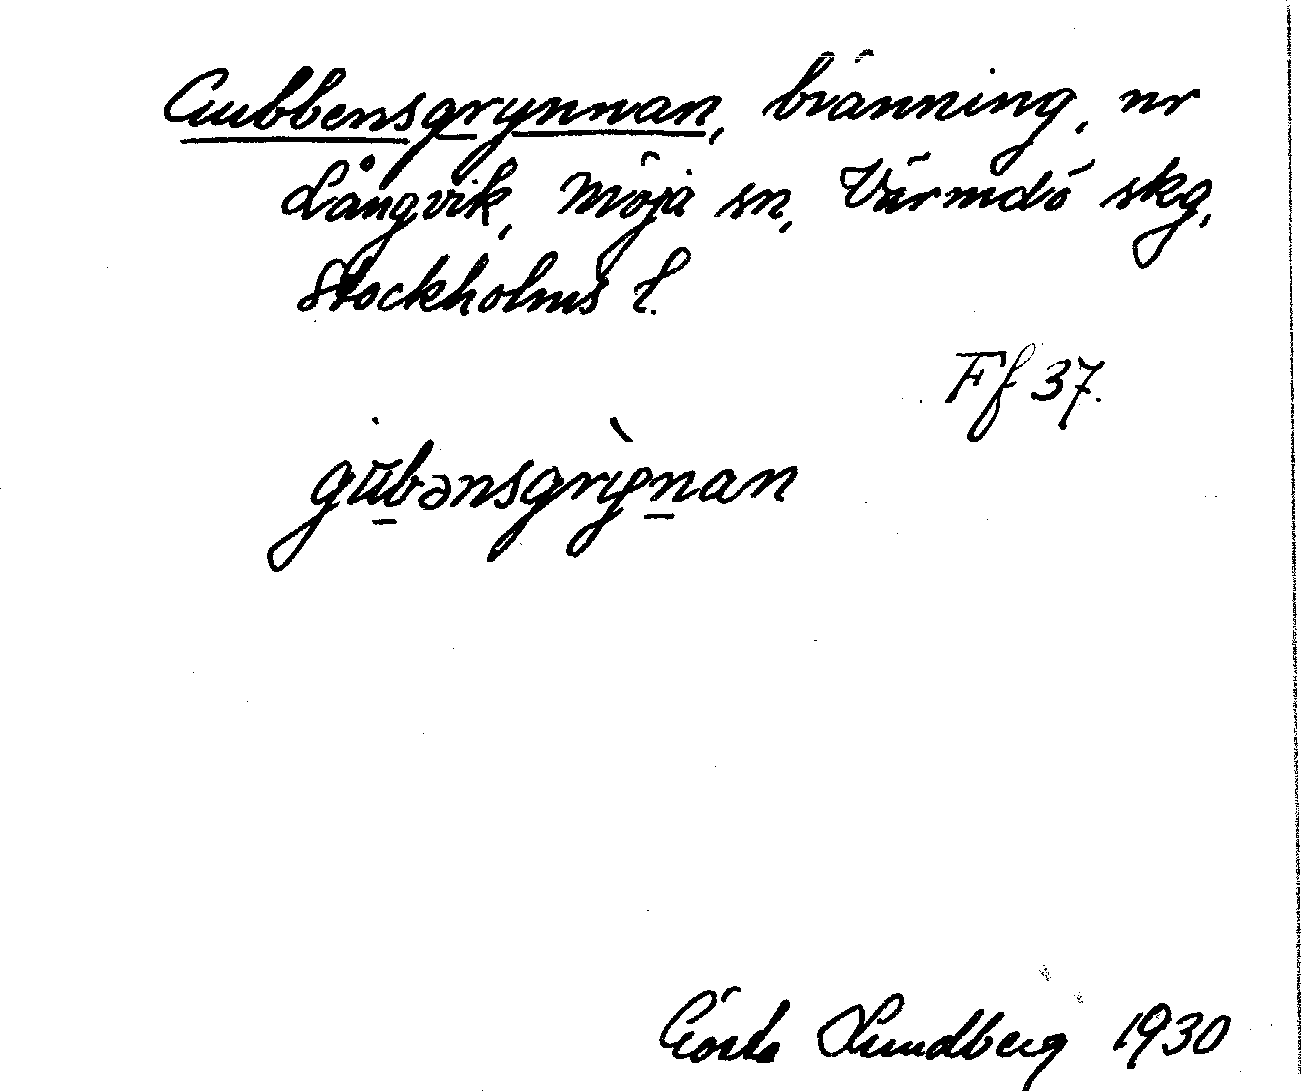 Gubbensgrynnan, bränning, nr
Långvik, Möja sn, Värmdö skg,
Stockholms l.
Ff 37.
gu̇̄b̠ənsgrỳn̠an
Gösta Lundberg 1930